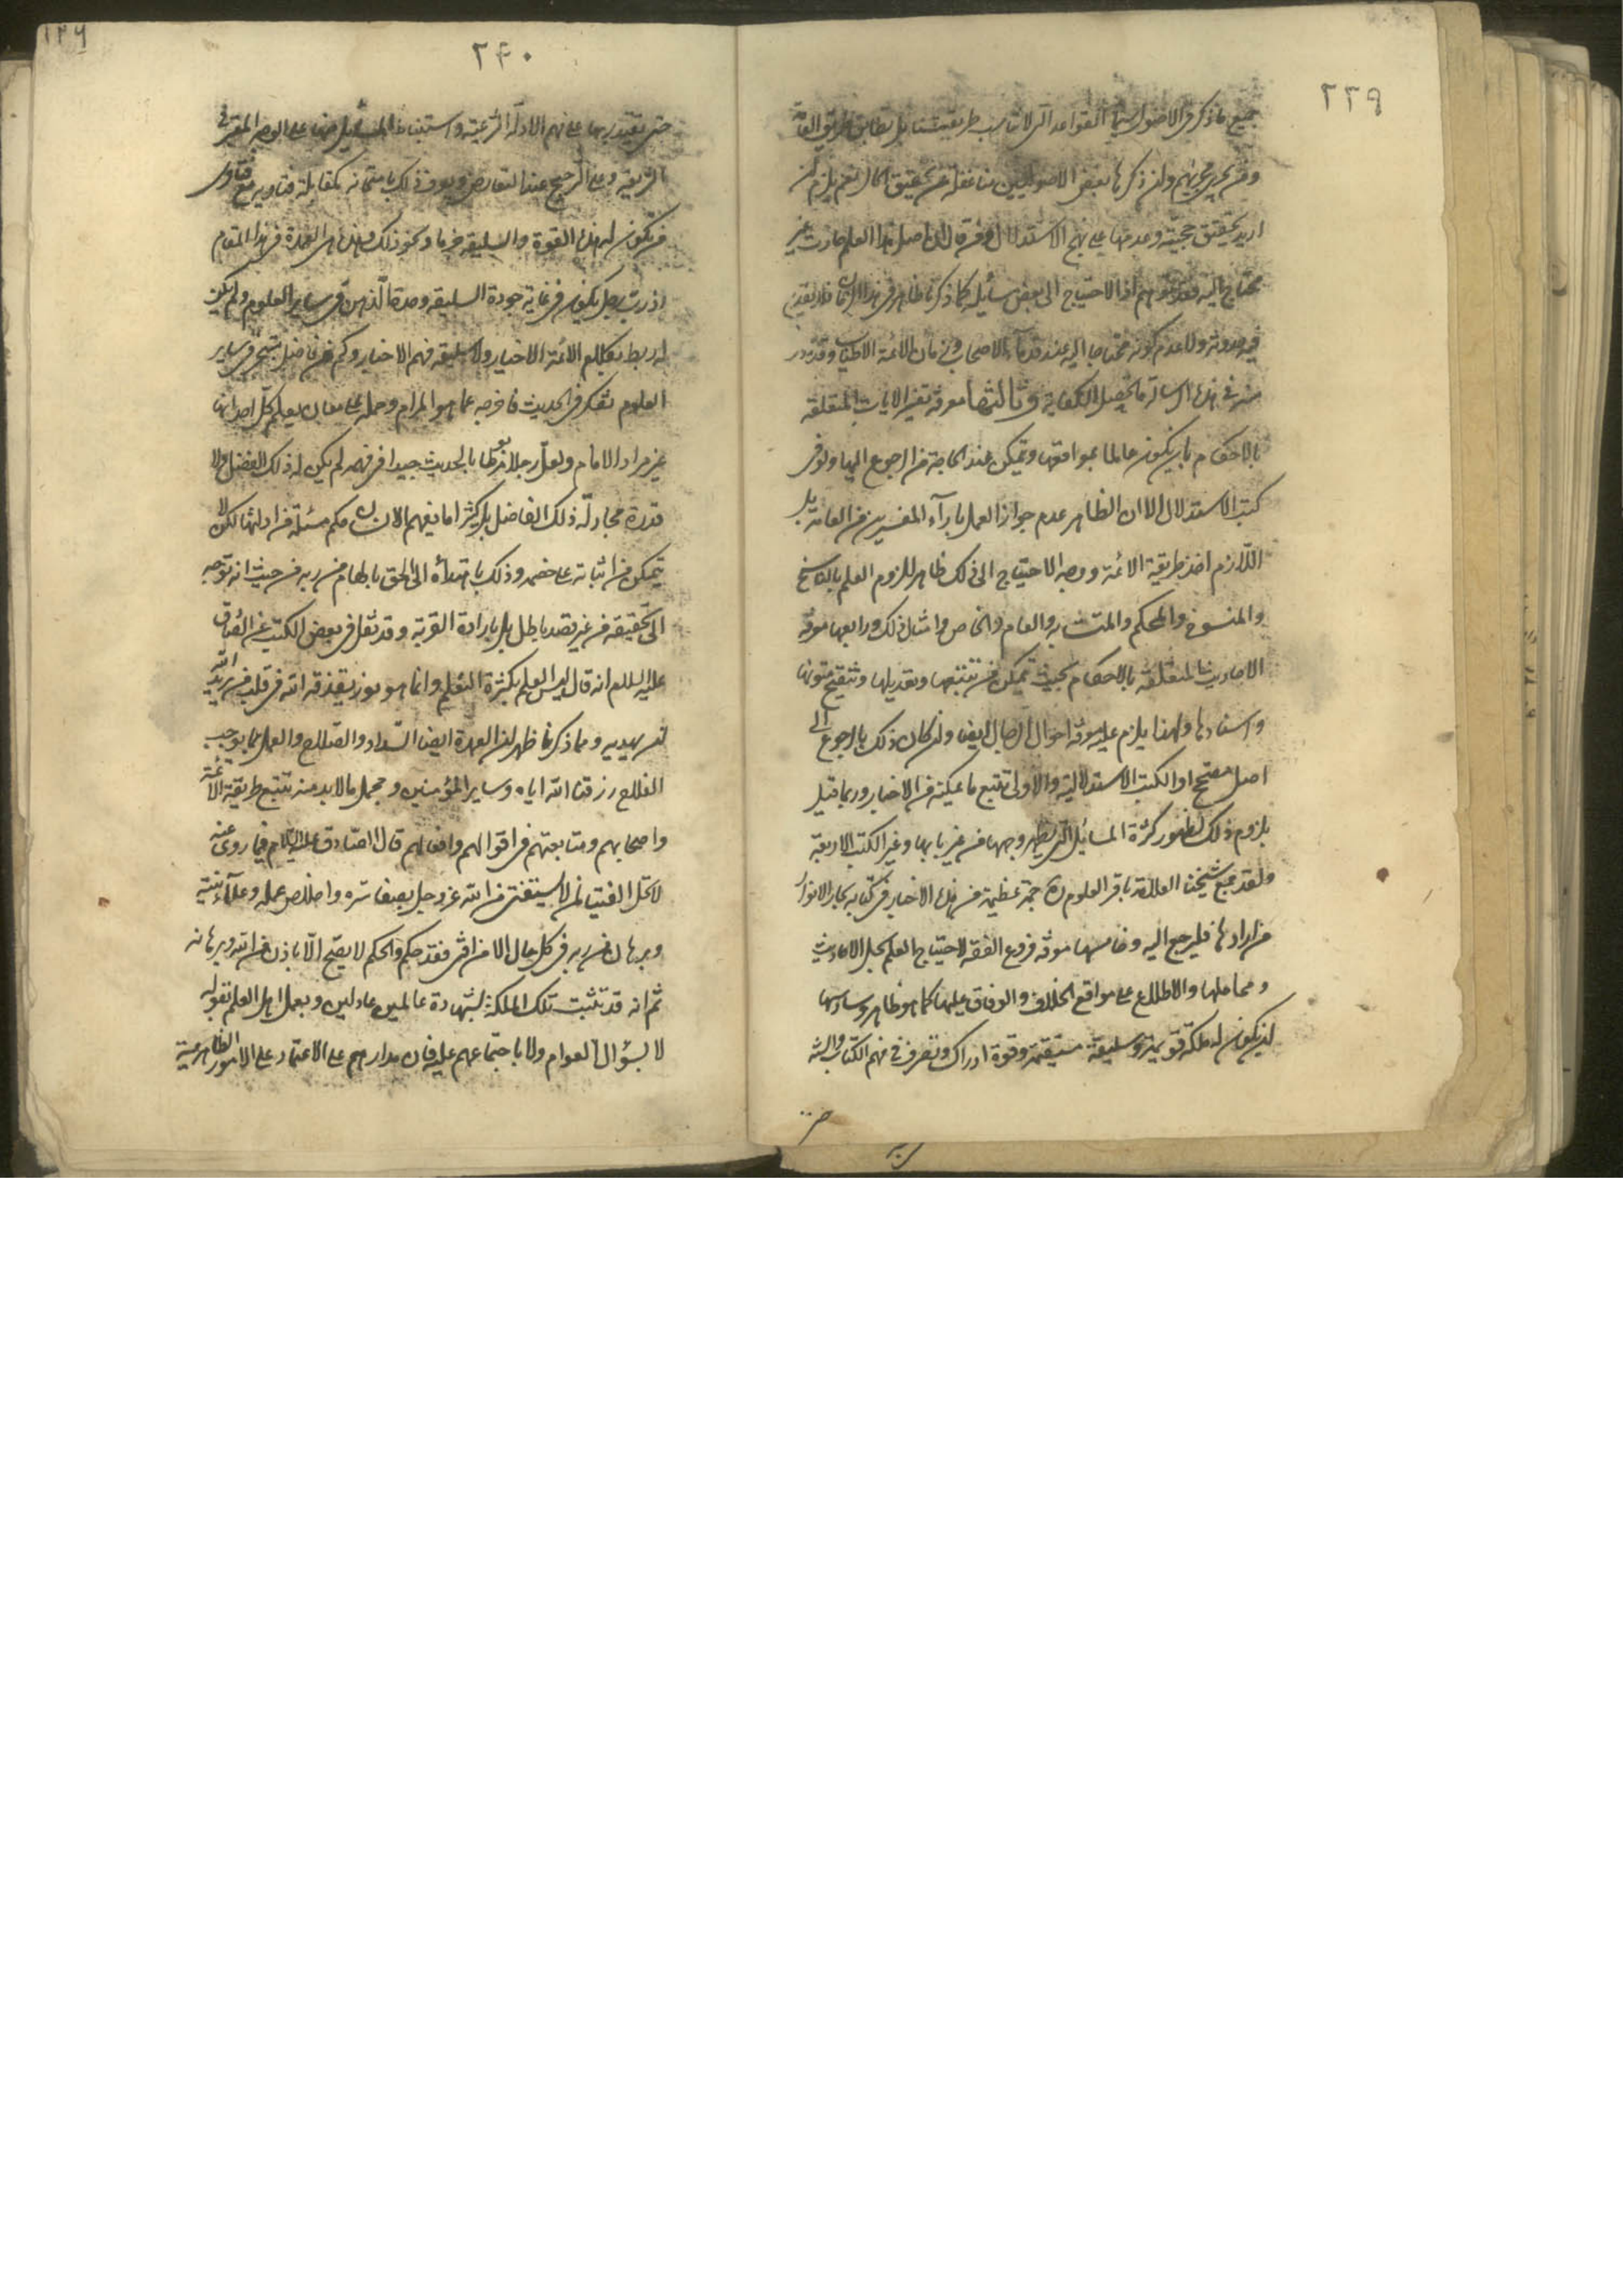 ٢٣٩
جميع ما ذكر في الاصول سيما القواعد التي لا تناسب طريقتنا بل تطابق طريق العامة
ومن يجري مجراهم وان ذكرها بعض الاصوليين منا غفلة عن تحقيق الحال نعم يلزم لمن
اريد تحقيق حجيته وعدمها على نهج الاستدلال ومن قال ان اصل هذا العلم حادث غير
محتاج اليه فقد توهم اذ الاحتياج الى بعض مسائله كما ذكرنا ظاهر في هذا الزمان فلا يقدح
فيه حدوثه ولا عدم كونه محتاجا اليه عند قدماء الاصحاب في زمان الائمة الاطياب وقد
منه في هذه الرسالة ما يحصل الكفاية وثالثها معرفة تفسير الايات المتعلقة
بالاحكام بان يكون عالما بمواقعها ويتمكن عند الحاجة من الرجوع اليها ولو في
كتب الاستدلال الا ان الظاهر عدم جواز العمل بآراء المفسرين من العامة بل
اللازم اخذ طريقة الائمة ووجه الاحتياج الى ذلك ظاهر للزوم العلم بالناسخ
والمنسوخ والمحكم والمتشابه والعام والخاص وامثال ذلك ورابعها معرفة
الاحاديث المتعلقة بالاحكام بحيث يتمكن من تتبعها وتعديلها وتنقيح متونها
واسنادها ولهذا يلزم عليه معرفة احوال الرجال ايضا ولو كان ذلك بالرجوع الى
اصل مصحح او الكتب الاستدلالية والاولى تتبع ما يمكنه من الاخبار وربما قيل
بلزوم ذلك لظهور كثرة المسائل التي يظهر وجهها من غير بابها وغير الكتب الاربعة
ولقد جمع شيخنا العلامة باقر العلوم ره جمة عظيمة من هذه الاخبار في كتابه بحار الانوار
من ارادها فليرجع اليه وخامسها معرفة فروع الفقه لاحتياج العلم بحل الاحاديث
ومحاملها والاطلاع على مواقع الخلاف والوفاق عليها كما هو ظاهر وسادسها
ان يكون له ملكة قويمة وسليقة مستقيمة وقوة ادراك وتصرف في فهم الكتاب والسنة
١٢٦
٢٤٠
حتى يقتدر بها على فهم الادلة الشرعية واستنباط المسائل منها على الوجه المقرر في
الشريعة وعلى الترجيح عند التعارض ويعرف ذلك بامتحانه بمقابلة فتاويه مع فتاوى
من يكون له هذه القوة والسليقة جزما ونحو ذلك وهذه هي العمدة في هذا المقام
اذ رب رجل يكون في غاية جودة السليقة وحدة الذهن في ساير العلوم ولم يكن
له ربط بكلام الائمة الاخيار ولا سليقة فهم الاخبار وكم من فاضل متبحر في ساير
العلوم تفكر في الحديث فاخرجه عما هو المرام وحمله على معان يعلم كل احد انها
غير مراد الامام ولعل رجلا مرتبطا بالحديث جيدا في فهمه لم يكن له ذلك الفضل ولا
قدرة مجادلة ذلك الفاضل بل كثيرا ما يفهم الانسان حكم مسئلة من ادلتها لكن لا
يتمكن من اثباته على خصمه وذلك باهتدائه الى الحق بالهام من ربه من حيث انه توجه
الى تحقيقه من غير تقصد باطل بل بارادة القربة وقد نقل في بعض الكتب عن الصادق
عليه السلام انه قال ليس العلم بكثرة التعلم وانما هو نور يقذفه الله في قلب من يريد الله
ان يهديه ومما ذكرنا ظهر ان العمدة ايضا السداد والصلاح والعمل بما يوجب
الفلاح رزقنا الله اياه وساير المؤمنين ومجمل ما لا بد منه تتبع طريقة الائمة
واصحابهم ومتابعتهم في اقوالهم وافعالهم قال الصادق عليه السلام فيما روى عنه
لا تحل الفتيا لمن لا يستفتي من الله عز وجل بصفاء سره واخلاص عمله وعلانيته
وبرهان من ربه في كل حال لان من افتى فقد حكم والحكم لا يصح الا باذن من الله وبرهانه
ثم انه قد تثبت تلك الملكة بشهادة عالمين عادلين وبعمل اهل العلم بقوله
لا بسؤال العوام ولا باجتماعهم عليه فان مدارهم على الاعتماد على الامور الظاهرية